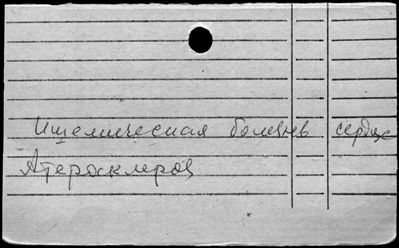 Ишемическая болезнь сердце
Атеросклероз